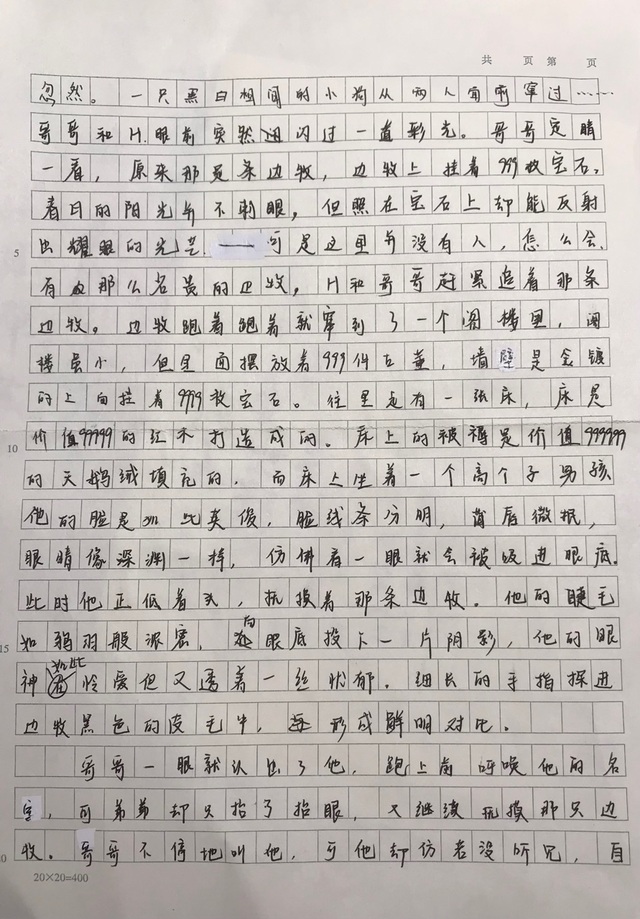 共 页 第 页
忽然。一只黑白相间的小狗从两人面前窜过……
哥哥和H.眼前突然闪过一道彩光。哥哥定睛
一看，原来那是条边牧，边牧上挂着999枚宝石。
春日的阳光并不刺眼，但照在宝石上却能反射
出耀眼的光芒.——可是这里并没有人，怎么会
有那么名贵的边牧。H和哥哥赶紧追着那条
边牧。边牧跑着跑着就窜到了一个阁楼里，阁
楼虽小，但里面摆放着999件古董，墙壁是金镶
的上面挂着9999枚宝石。往里走有一张床，床是
价值99999的红木打造成的。床上的被褥是价值999999
的天鹅绒填充的.而床上坐着一个高个子男孩
他的脸是如此英俊，脸线条分明，薄唇微抿，
眼睛像深渊一样，仿佛看一眼就会被吸进眼底.
此时他正低着头，抚摸着那条边牧。他的睫毛
如鸦羽般浓密，向眼底投下一片阴影，他的眼
神如此怜爱但又透着一丝忧郁.细长的手指探进
边牧黑色的皮毛中，形成鲜明对比。
哥哥一眼就认出了他，跑上前呼唤他的名
字，可弟弟却只抬了抬眼，又继续抚摸那只边
牧。哥哥不停地叫他，可他却仿若没听见，自
5
10
15
20
20×20=400